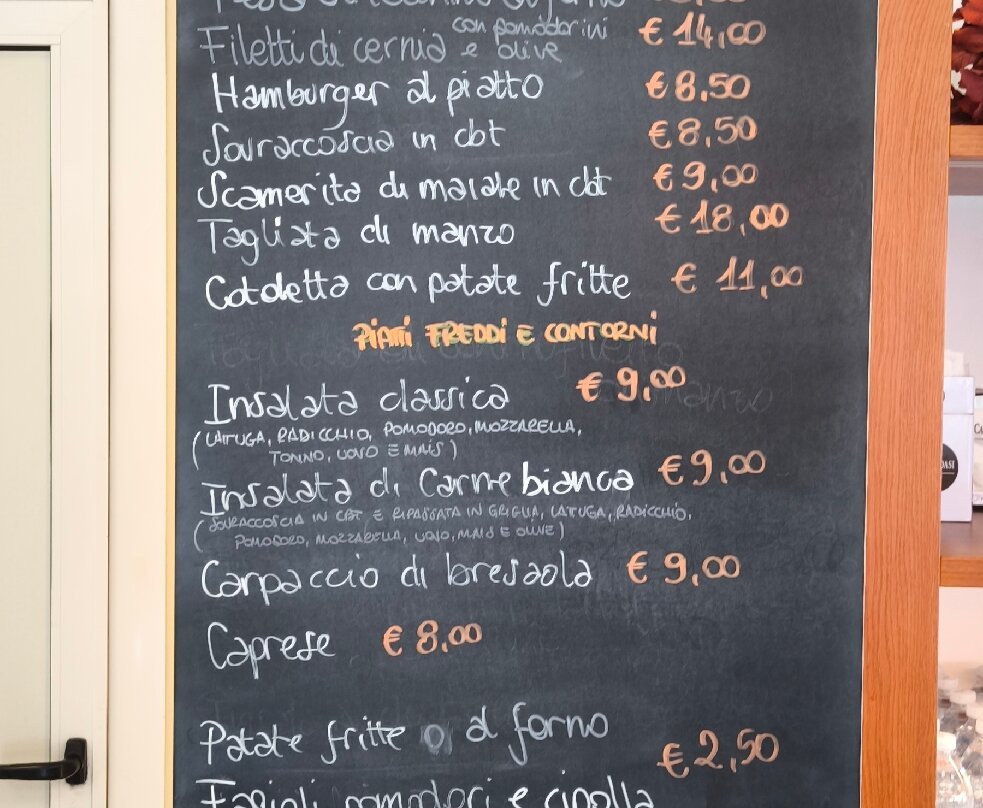 Filetti di cernia con pomodorini e olive € 14,00
Hamburger al piatto € 8,50
Sovraccoscia in cbt € 8,50
Scamerita di maiale in cbt € 9,00
Tagliata di manzo € 18,00
Cotoletta con patate fritte € 11,00
PIATTI FREDDI E CONTORNI
Insalata classica € 9,00
(LATTUGA, RADICCHIO, POMODORO, MOZZARELLA,
TONNO, UOVO E MAIS)
Insalata di Carne bianca € 9,00
(SOVRACCOSCIA IN CBT E RIPASSATA IN GRIGLIA, LATUGA, RADICCHIO,
POMODORO, MOZZARELLA, UOVO, MAIS E OLIVE)
Carpaccio di bresaola € 9,00
Caprese € 8,00
Patate fritte o al forno € 2,50
Fagioli pomodori e cipolla